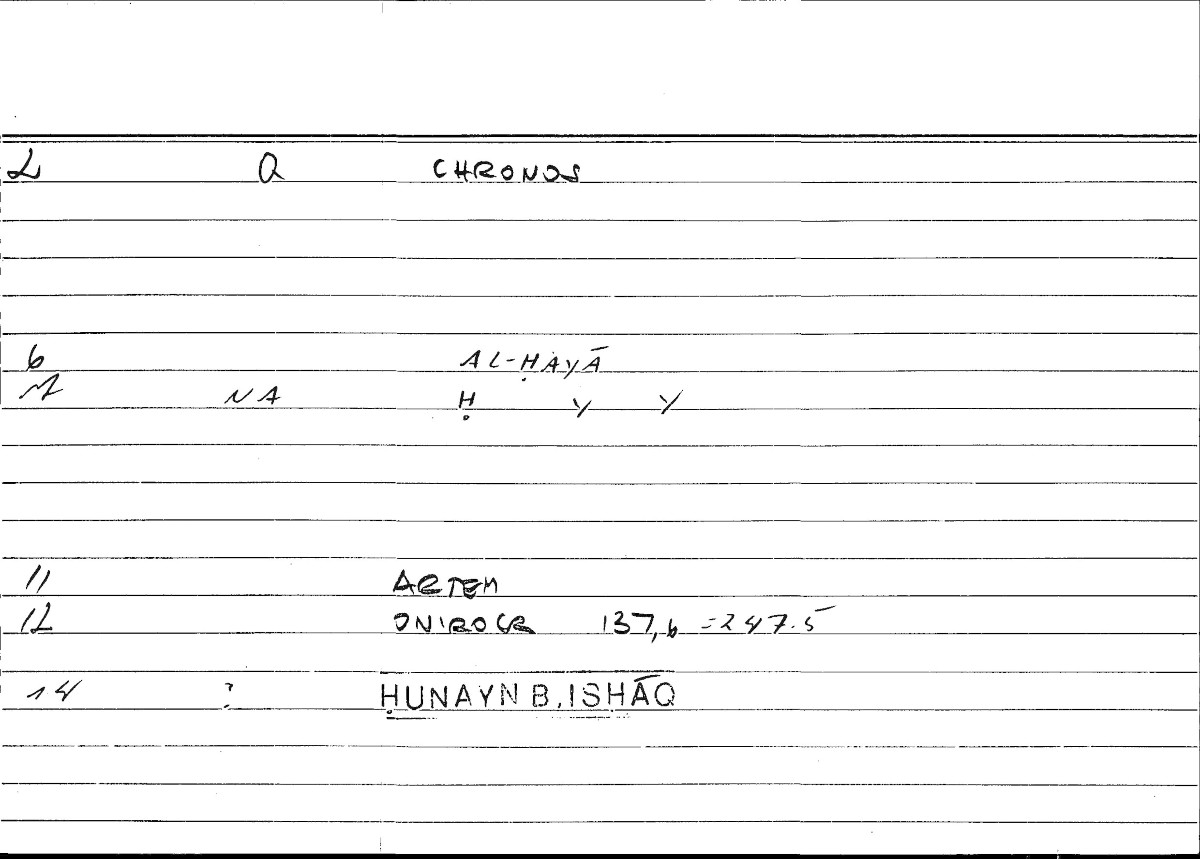 2 Q CHRONOS
6 AL-ḤAYĀ
7 NA Ḥ Y Y
11 ARTEM
12 ONIROCR 137,6 = 247.5
14 ? ḤUNAYN B. ISḤĀQ